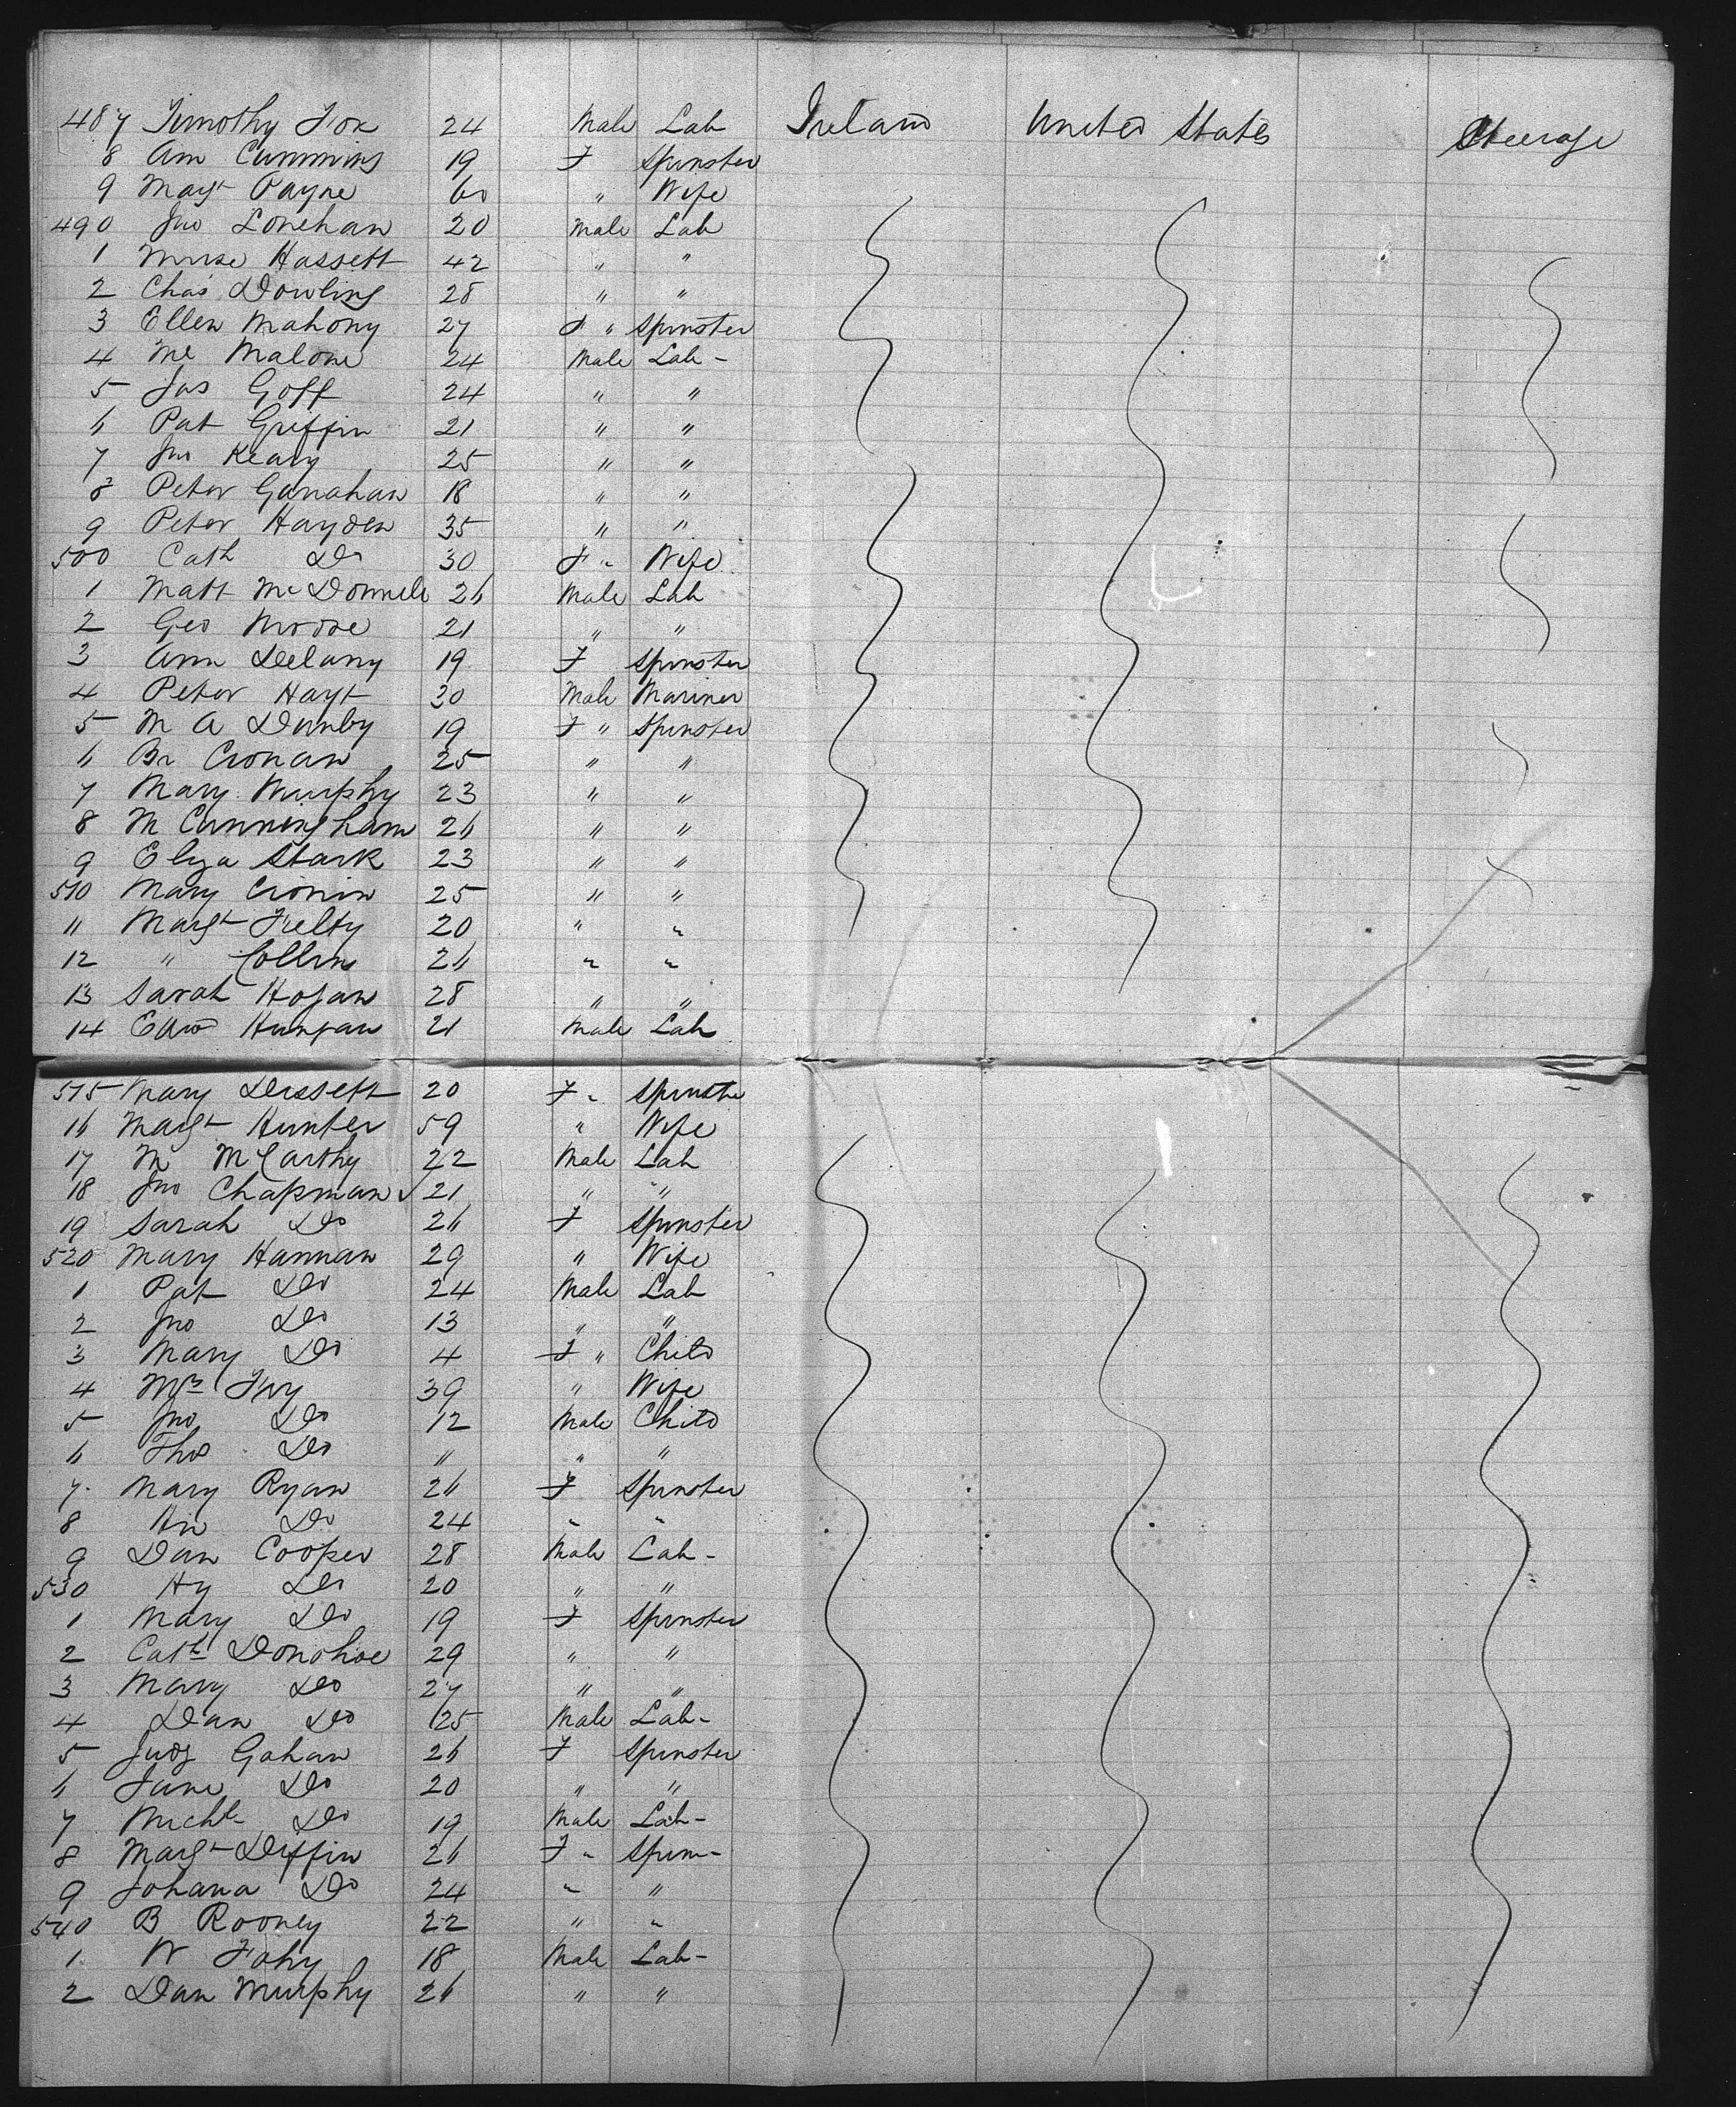 487 Timothy Fox 24 Male Lab Ireland United States Steerage
8 Ann Cummins 19 F Spinster
9 Margt Payne 60 " Wife
490 Jno Lonehan 20 Male Lab
1 Hassett 42 " "
2 Chas Dowling 28 " "
3 Ellen Mahony 27 F " Spinster
4 Ml Malone 24 Male Lab -
5 Jas Goff 24 " "
6 Pat Griffin 21 " "
7 Jno Keary 25 " "
8 Peter Ganahan 18 " "
9 Peter Hayden 35 " "
500 Cath Do 30 F " Wife
1 Matt McDonnell 26 Male Lab
2 Geo Moore 21 " "
3 Ann Delany 19 F Spinster
4 Peter Hayt 30 Male Mariner
5 M A Danby 19 F " Spinster
6 Br Cronan 25 " "
7 Mary Murphy 23 " "
8 M Cunningham 26 " "
9 Eliza Stark 23 " "
510 Mary Cronin 25 " "
11 Margt Fielty 20 " "
12 " Collins 26 " "
13 Sarah Hogan 28 " "
14 Edwd 21 Male Lab
515 Mary Dissett 20 F " Spinster
16 Margt Hunter 59 " Wife
17 M McCarthy 22 Male Lab
18 Jno Chapman 21 " "
19 Sarah Do 26 F Spinster
520 Mary Hannan 29 " Wife
1 Pat Do 24 Male Lab
2 Jno Do 13 " "
3 Mary Do 4 F " Child
4 Mrs Fay 39 " Wife
5 Jno Do 12 Male Child
6 Thos Do " " "
7 Mary Ryan 26 F Spinster
8 Do 24 " "
9 Dan Cooper 28 Male Lab -
530 Hy Do 20 " "
1 Mary Do 19 F Spinster
2 Cath Donohoe 29 " "
3 Mary Do 27 " "
4 Dan Do 25 Male Lab -
5 Judy Gahan 26 F Spinster
6 Jane Do 20 " "
7 Michl Do 19 Male Lab -
8 Margt Diffin 26 F " Spin -
9 Johana Do 24 " "
540 B Rooney 22 " "
1 W Fahy 18 Male Lab -
2 Dan Murphy 26 " "